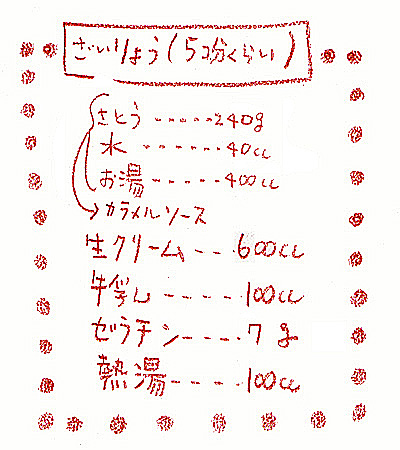 ざいりょう(5コ分くらい)
さとう-----240g
水------40cc
お湯-----400cc
カラメルソース
生クリーム---600cc
牛乳-----100cc
ゼラチン----7g
熱湯----100cc